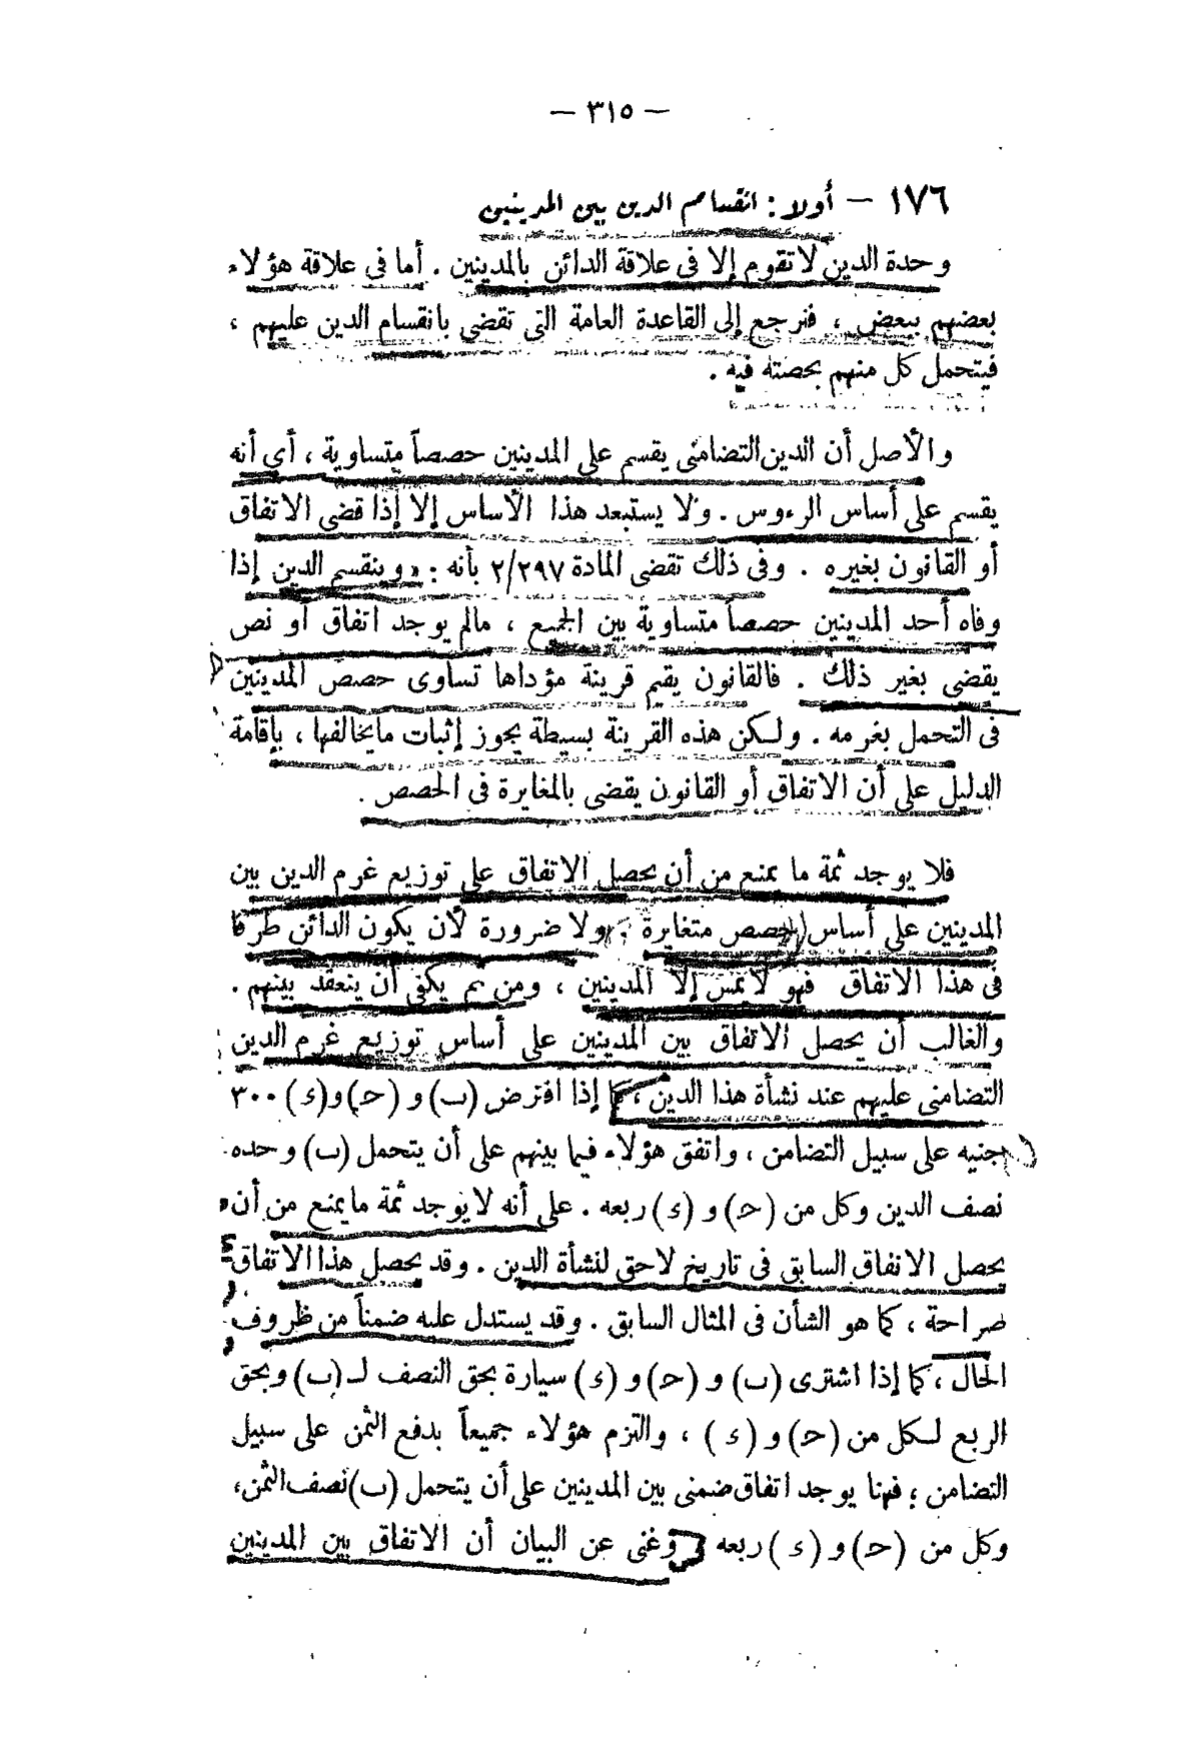 — ٣١٥ —
١٧٦ — أولا : انقسام الدين بين المدينين
وحدة الدين لا تقوم إلا فى علاقة الدائن بالمدينين . أما فى علاقة هؤلاء
بعضهم ببعض ، فنرجع إلى القاعدة العامة التى تقضى بانقسام الدين عليهم ،
فيتحمل كل منهم بحصته فيه .
والأصل أن الدين التضامنى يقسم على المدينين حصصاً متساوية ، أى أنه
يقسم على أساس الرءوس . ولا يستبعد هذا الأساس إلا إذا قضى الاتفاق
أو القانون بغيره . وفى ذلك تقضى المادة ٢/٢٩٧ بأنه : « وينقسم الدين إذا
وفاه أحد المدينين حصصاً متساوية بين الجميع ، مالم يوجد اتفاق أو نص
يقضى بغير ذلك . فالقانون يقيم قرينة مؤداها تساوى حصص المدينين
فى التحمل بغرمه . ولكن هذه القرينة بسيطة يجوز إثبات مايخالفها ، بإقامة
الدليل على أن الاتفاق أو القانون يقضى بالمغايرة فى الحصص .
فلا يوجد ثمة ما يمنع من أن يحصل الاتفاق على توزيع غرم الدين بين
المدينين على أساس حصص متغايرة . ولا ضرورة لأن يكون الدائن طرفا
فى هذا الاتفاق فهو لا يمس إلا المدينين ، ومن ثم يكفى أن ينعقد بينهم .
والغالب أن يحصل الاتفاق بين المدينين على أساس توزيع غرم الدين
التضامنى عليهم عند نشأة هذا الدين ، كما إذا افترض (ب) و (حـ) و(ء) ٣٠٠
جنيه على سبيل التضامن ، واتفق هؤلاء فيما بينهم على أن يتحمل (ب) وحده
نصف الدين وكل من (حـ) و (ء) ربعه . على أنه لا يوجد ثمة ما يمنع من أن
يحصل الاتفاق السابق فى تاريخ لاحق لنشأة الدين . وقد يحصل هذا الاتفاق
صراحة ، كما هو الشأن فى المثال السابق . وقد يستدل عليه ضمناً من ظروف
الحال ، كما إذا اشترى (ب) و (حـ) و (ء) سيارة بحق النصف لـ (ب) وبحق
الربع لكل من (حـ) و (ء) ، والتزم هؤلاء جميعاً بدفع الثمن على سبيل
التضامن ؛ فهنا يوجد اتفاق ضمنى بين المدينين على أن يتحمل (ب) نصف الثمن ،
وكل من (حـ) و (ء) ربعه وغنى عن البيان أن الاتفاق بين المدينين